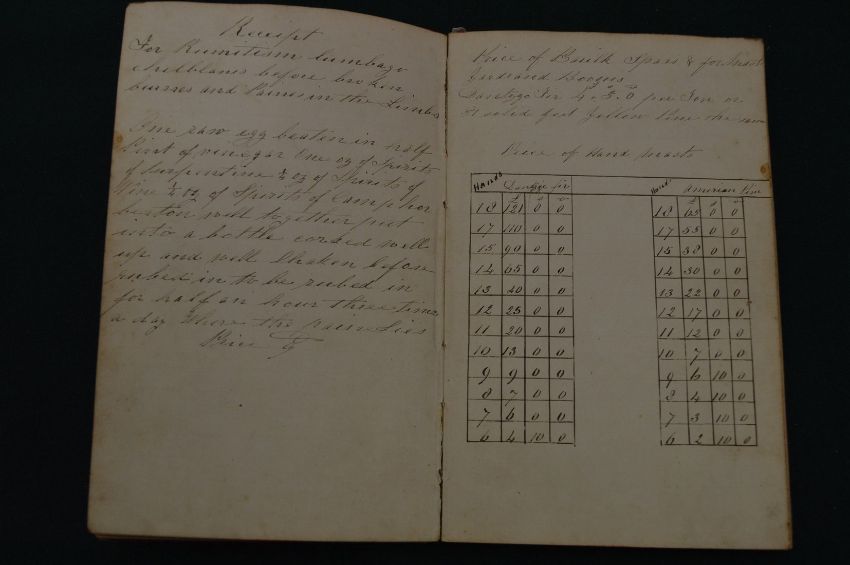 Receipt
For Rumitism lumbago
chelblains before broken
burnes and Paines in the Limbs
One raw egg beatin in half
Pint of vinegar One oz of Spirits
of turpentine ½ oz of Spirits of
Wine ¼ oz of Spirits of Camphor
beaton well together put
into a bottle corked well
up and well Shaken before
rubed in to be rubed in
for half an hour three times
a day Where the paine lies
Price of Built Spars & for
4 . 5 . 0 per Ton or
solid feet
Price of Hand Masts
Hands Dantzic fir
£ s d
18 121 0 0
17 110 0 0
15 90 0 0
14 65 0 0
13 40 0 0
12 25 0 0
11 20 0 0
10 13 0 0
9 9 0 0
8 7 0 0
7 6 0 0
6 4 10 0
Hands American Pine
£ s d
18 65 0 0
17 55 0 0
15 38 0 0
14 30 0 0
13 22 0 0
12 17 0 0
11 12 0 0
10 7 0 0
9 6 10 0
8 4 10 0
7 3 10 0
6 2 10 0